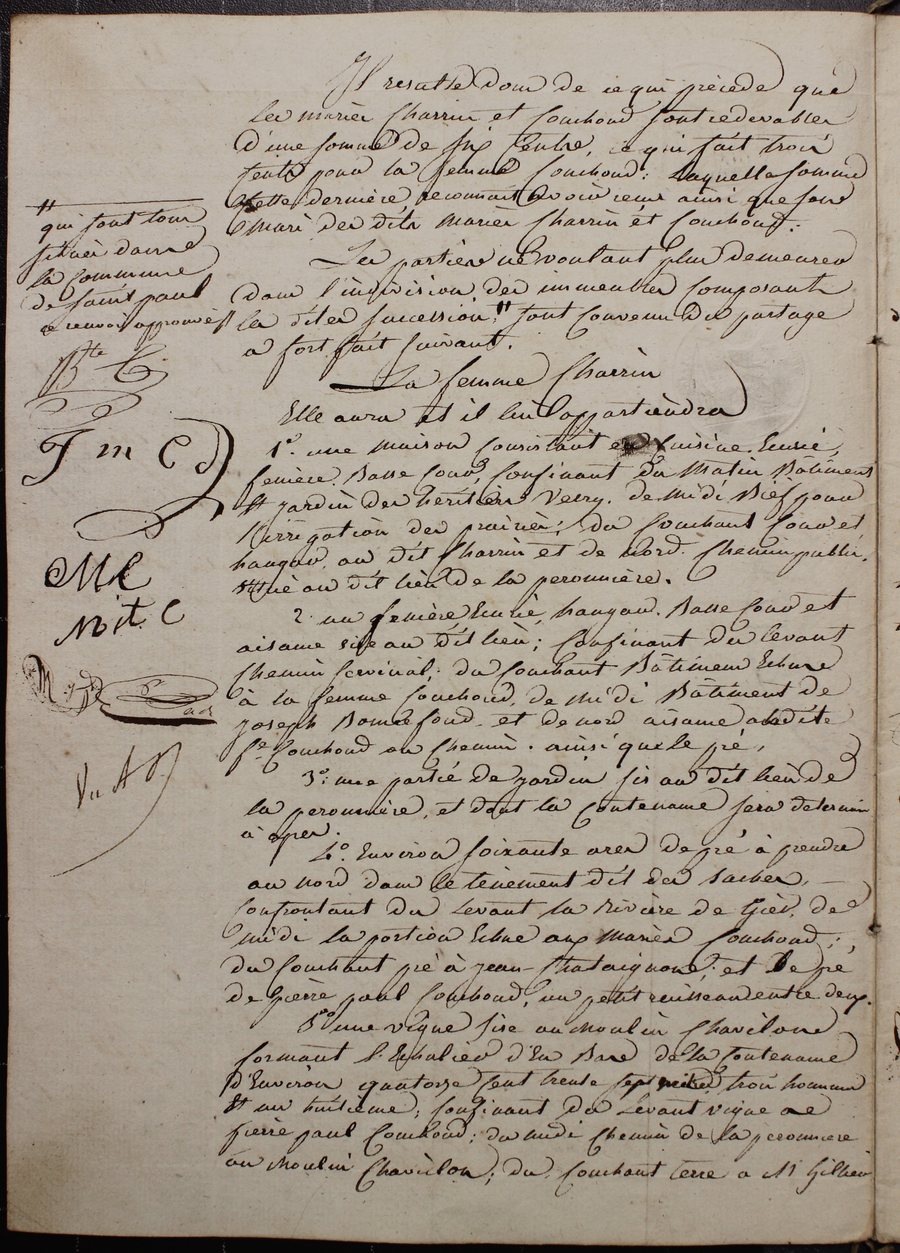 Il resulte donc de ce qui précede que
les mariés Charrin et Couchoud sont redevables
d'une somme de six Cents, ce qui fait trois
Cents pour la femme Couchoud; laquelle somme
Cette dernière reconnait avoir recue ainsi que son
mari des dits mariés Charrin et Couchoud.
Les parties ne voulant plus demeurer
dans l'indivision des immeubles Composants
la dite succession, # sont Convenu du partage
a fort fait suivant.
La femme Charrin
Elle aura et il lui appartiendra
1° une maison Consistant en Cuisine, Ecurie,
fenière, Basse Cour, Confinant du Matin Bâtiments
et jardin des héritiers Verry, de midi Bief pour
l'irrigation des prairies; du Couchant Cour et
hangar, au dit Charrin et de nord Chemin public,
situé au dit lieu de la peronnière.
2° un fenière, Ecurie, hangar, Basse Cour et
aisance sise au dit lieu; Confinant du levant
Chemin ; du Couchant Bâtiment Echue
à la femme Couchoud, de midi Bâtiment de
joseph Bonnefond, et de nord aisance a ladite
fe Couchoud au Chemin. ainsi que le pré,
3° une partie de jardin sis au dit lieu de
la peronnière, et dont la Contenance sera determin
à apres.
4° Environ soixante ares de pré à prendre
au nord dans le tènement dit des ,
Confrontant du Levant la Rivière de Gier, de
midi la portion Echue aux Mariés Couchoud;
du Couchant pré à jean Chataignon; et le pré
de pierre paul Couchoud, un petit ruisseau entre deux.
5° une vigne sise au Moulin Chavilon
formant l' d'En Bas de la Contenance
d'Environ quatorze Cent trente sept mètres trois hommes
et un huitieme; Confinant du Levant vigne a
pierre paul Couchoud; du midi Chemin de la peronniere
au Moulin Chavilon; du Couchant terre a Mr Gillier
# qui sont tous
situés dans
la Commune
de saint paul
ce renvoi approuvé #
Bte C
J m C d
MC
M
Vu A P.